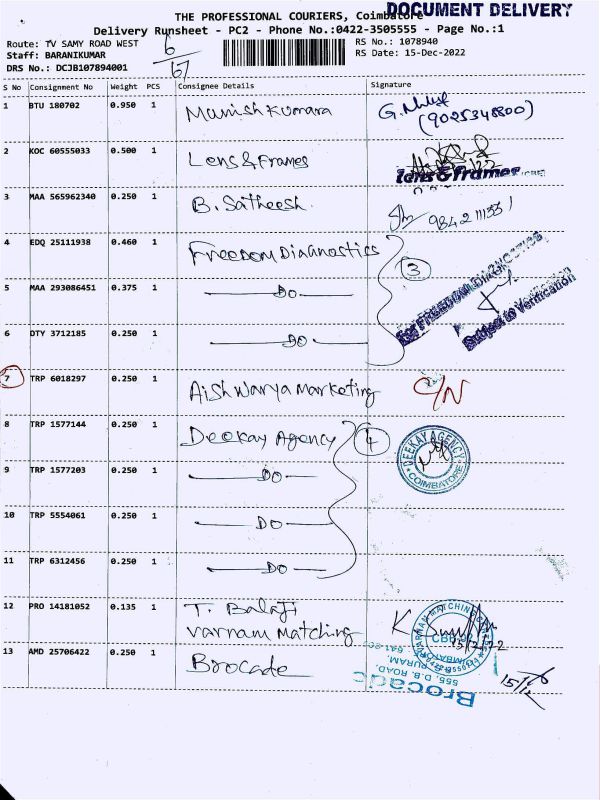 DOCUMENT DELIVERY
THE PROFESSIONAL COURIERS, Coimbatore
Delivery Runsheet - PC2 - Phone No.:0422-3505555 - Page No.:1
Route: TV SAMY ROAD WEST 6 RS No.: 1078940
Staff: BARANIKUMAR 67 RS Date: 15-Dec-2022
DRS No.: DCJB107894001
S No Consignment No Weight PCS Consignee Details Signature
1 BTU 180702 0.950 1 Manish Kumara
(9025348800)
2 KOC 60555033 0.500 1 Lens & Frames
Lens & Frames (CBE)
3 MAA 565962340 0.250 1 B. Satheesh
4 EDQ 25111938 0.460 1 Freedom Diagnostics 3
For FREEDOM DIAGNOSTICS
Subject to Verification
5 MAA 293086451 0.375 1 DO
6 DTY 3712185 0.250 1 DO
7 TRP 6018297 0.250 1 Aishwarya Marketing C/N
8 TRP 1577144 0.250 1 Deekay Agency 4
DEEKAY AGENCY
COIMBATORE
9 TRP 1577203 0.250 1 DO
10 TRP 5554061 0.250 1 DO
11 TRP 6312456 0.250 1 DO
12 PRO 14181052 0.135 1 T. Balaji
Varnam Matching
13 AMD 25706422 0.250 1 Brocade
555, D.B. ROAD,
15/12